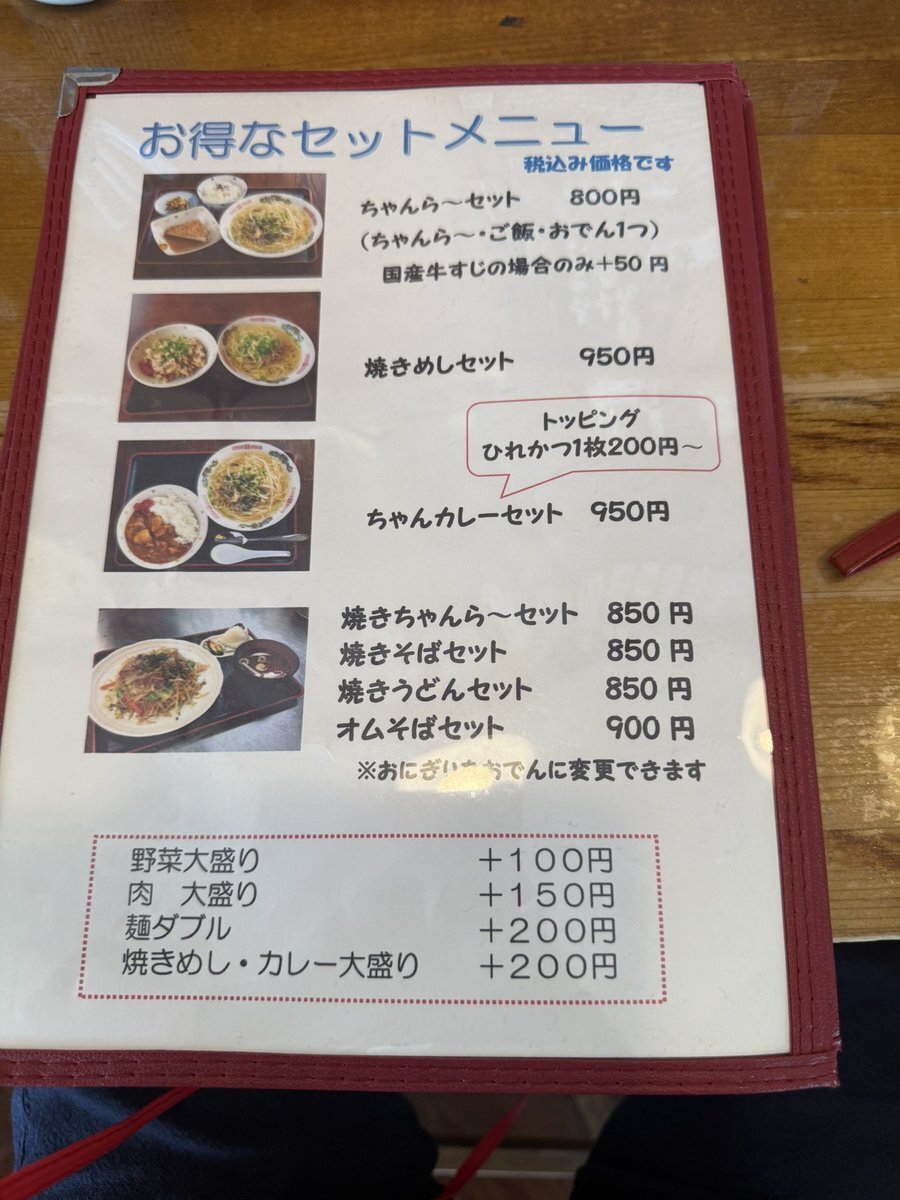 お得なセットメニュー
税込み価格です
ちゃんら～セット 800円
(ちゃんら～・ご飯・おでん1つ)
国産牛すじの場合のみ+50円
焼きめしセット 950円
トッピング
ひれかつ1枚200円～
ちゃんカレーセット 950円
焼きちゃんら～セット 850円
焼きそばセット 850円
焼きうどんセット 850円
オムそばセット 900円
※おにぎりをおでんに変更できます
野菜大盛り +100円
肉 大盛り +150円
麺ダブル +200円
焼きめし・カレー大盛り +200円